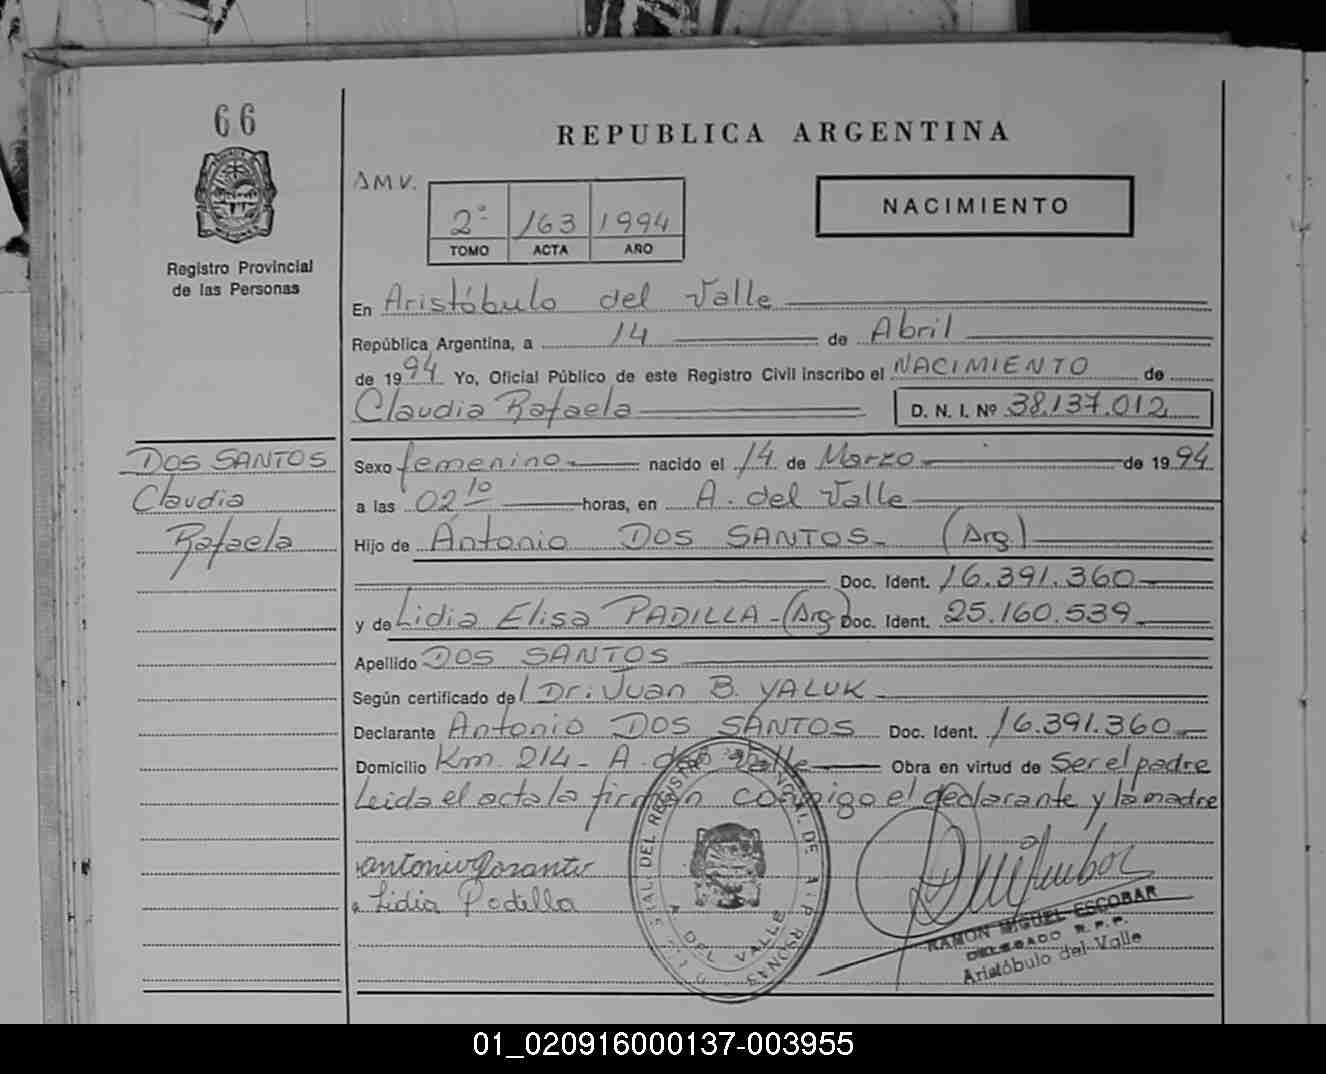 66
REPUBLICA ARGENTINA
Registro Provincial
de las Personas
AMV.
2º 163 1994
TOMO ACTA AÑO
NACIMIENTO
En Aristóbulo del Valle
República Argentina, a 14 de Abril
de 1994 Yo, Oficial Público de este Registro Civil inscribo el NACIMIENTO de
Claudia Rafaela D. N. I. Nº 38.137.012
DOS SANTOS
Claudia
Rafaela
Sexo femenino nacido el 14 de Marzo de 1994
a las 02 10 horas, en A. del Valle
Hijo de Antonio DOS SANTOS - (Arg.)
Doc. Ident. 16.391.360
y de Lidia Elisa PADILLA - (Arg) Doc. Ident. 25.160.539
Apellido DOS SANTOS
Según certificado del Dr. Juan B. YALUK
Declarante Antonio DOS SANTOS Doc. Ident. 16.391.360
Domicilio Km. 214 - A. del Valle Obra en virtud de Ser el padre
Leida el acta la firman conmigo el declarante y la madre
Lidia Padilla
A. DEL VALLE
RAMON MIGUEL ESCOBAR
DELEGADO R.P.P.
Aristóbulo del Valle
01_020916000137-003955